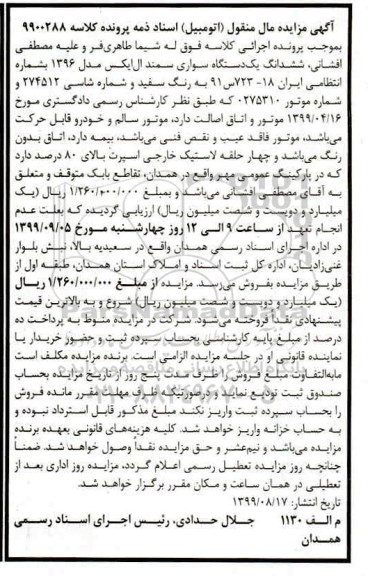 آگهی مزایده مال منقول (اتومبیل) اسناد ذمه پرونده کلاسه ۹۹۰۰۲۸۸
بموجب پرونده اجرائی کلاسه فوق له شیما طاهری‌فر و علیه مصطفی
افشانی، ششدانگ یک‌دستگاه سواری سمند ال‌ایکس مدل ۱۳۹۶ بشماره
انتظامی ایران ۱۸- ۷۲۳س۹۱ به رنگ سفید و شماره شاسی ۲۷۴۵۱۲ و
شماره موتور ۰۲۷۵۳۱۰ که طبق نظر کارشناس رسمی دادگستری مورخ
۱۳۹۹/۰۴/۱۶ موتور و اتاق اصالت دارد، موتور سالم و خودرو قابل حرکت
می‌باشد، موتور فاقد عیب و نقص فنی می‌باشد، بیمه دارد، اتاق بدون
رنگ می‌باشد و چهار حلقه لاستیک خارجی اسپرت بالای ۸۰ درصد دارد
که در پارکینگ عمومی مهر واقع در همدان، تقاطع بابک متوقف و متعلق
به آقای مصطفی افشانی می‌باشد و بمبلغ ۱/۲۶۰/۰۰۰/۰۰۰ ریال (یک
میلیارد و دویست و شصت میلیون ریال) ارزیابی گردیده که بعلت عدم
انجام تعهد از ساعت ۹ الی ۱۲ روز چهارشنبه مورخ ۱۳۹۹/۰۹/۰۵
در اداره اجرای اسناد رسمی همدان واقع در سعیدیه بالا، نبش بلوار
غنی‌زادیان، اداره کل ثبت اسناد و املاک استان همدان، طبقه اول از
طریق مزایده بفروش می‌رسد. مزایده از مبلغ ۱/۲۶۰/۰۰۰/۰۰۰ ریال
(یک میلیارد و دویست و شصت میلیون ریال) شروع و به بالاترین قیمت
پیشنهادی نقداً فروخته می‌شود. شرکت در مزایده منوط به پرداخت ده
درصد از مبلغ پایه کارشناسی بحساب سپرده ثبت و حضور خریدار یا
نماینده قانونی او در جلسه مزایده الزامی است. برنده مزایده مکلف است
مابه‌التفاوت مبلغ فروش را ظرف مدت پنج روز از تاریخ مزایده بحساب
صندوق ثبت تودیع نماید و درصورتیکه ظرف مهلت مقرر مانده فروش
را بحساب سپرده ثبت واریز نکند مبلغ مذکور قابل استرداد نبوده و
به حساب خزانه واریز خواهد شد. کلیه هزینه‌های قانونی بعهده برنده
مزایده می‌باشد و نیم‌عشر و حق مزایده نقداً وصول خواهد شد. ضمناً
چنانچه روز مزایده تعطیل رسمی اعلام گردد، مزایده روز اداری بعد از
تعطیلی در همان ساعت و مکان مقرر برگزار خواهد شد.
تاریخ انتشار: ۱۳۹۹/۰۸/۱۷
م الف ۱۱۳۰ جلال حدادی، رئیس اجرای اسناد رسمی
همدان